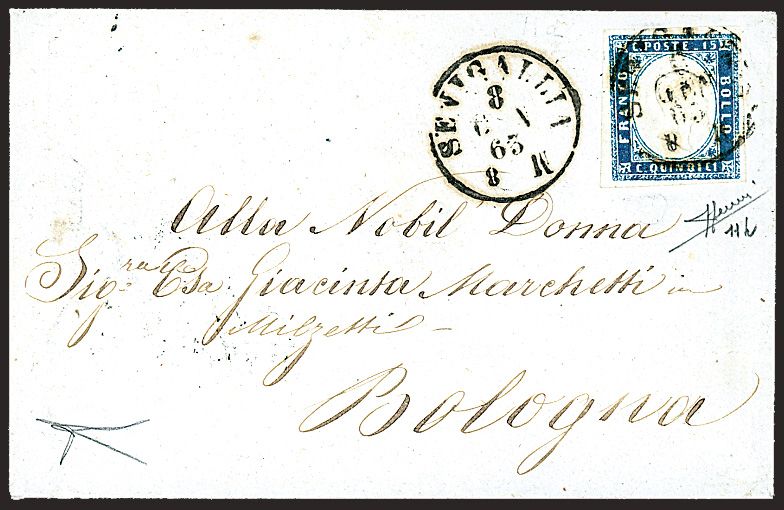 C. POSTE. 15
FRANCO
BOLLO
C. QUINDICI
SENIGALLIA
8
63
8
M
Alla Nobil Donna
Sig.ra Csa Giacinta Marchetti in
Milzetti
Bologna